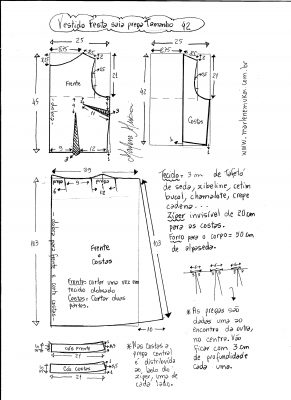 Vestido Festa saia prega Tamanho 42
25
25
Frente
45
21
9
12
42
21
www.marlenemukai.com.br
39
prega
prega
9
9
103
103
dobra para frente e costa costas
Frente
e
Costas
Frente: cortar uma vez em
tecido dobrado
Costas: Cortar duas
partes.
10
Tecido = 3 cm de Tafetá
de seda, xibeline, cetim
buçol, chamalote, crepe
cadena...
Zíper invisível de 20cm
para as costas.
Forro para o corpo = 90cm
de alpaseda.
* As pregas são
dadas uma ao
encontro da outra,
no centro. Vão
ficar com 3 cm
de profundidade
cada uma.
Cós frente
21
Cós costas
21
* Nas Costas a
prega central
é distribuída
ao lado do
zíper, uma de
cada lado.